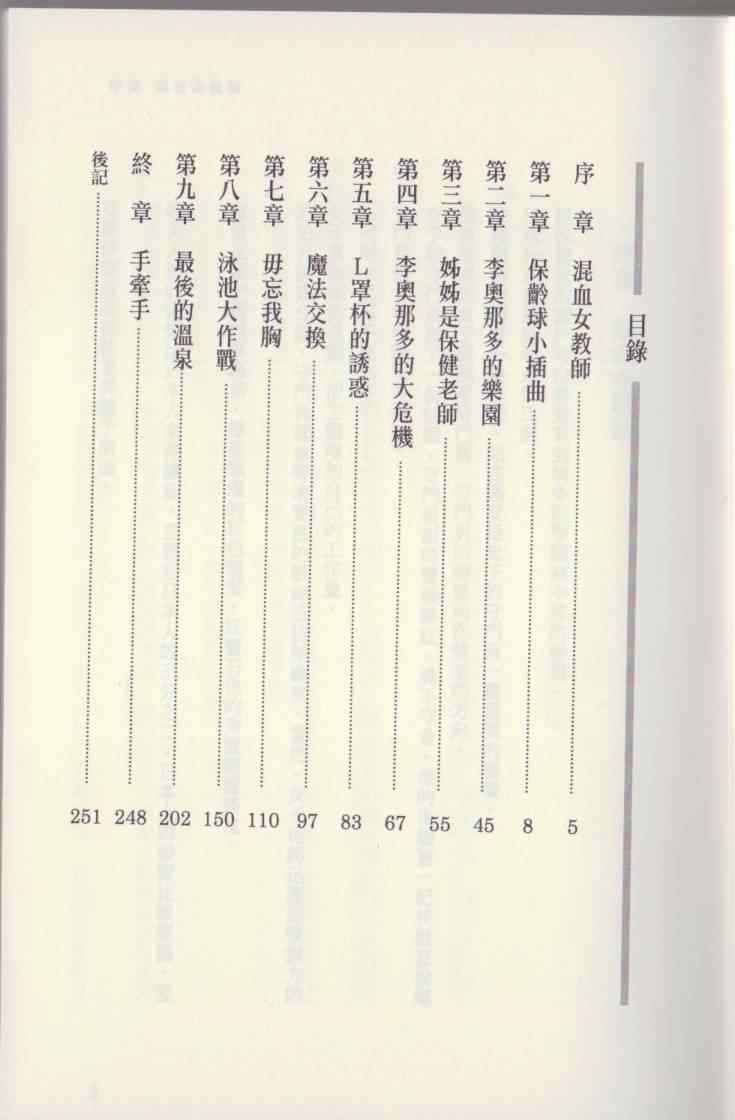 目錄
序 章 混血女教師 5
第一章 保齡球小插曲 8
第二章 李奧那多的樂園 45
第三章 姊姊是保健老師 55
第四章 李奧那多的大危機 67
第五章 L罩杯的誘惑 83
第六章 魔法交換 97
第七章 毋忘我胸 110
第八章 泳池大作戰 150
第九章 最後的溫泉 202
終 章 手牽手 248
後記 251